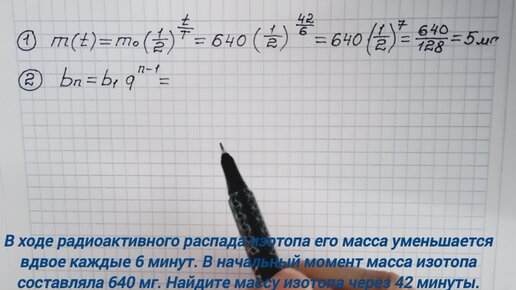 ① m(t) = m₀(1/2)^(t/T) = 640(1/2)^(42/6) = 640(1/2)^7 = 640/128 = 5 мг
② bₙ = b₁ q^(n-1) =
В ходе радиоактивного распада изотопа его масса уменьшается
вдвое каждые 6 минут. В начальный момент масса изотопа
составляла 640 мг. Найдите массу изотопа через 42 минуты.